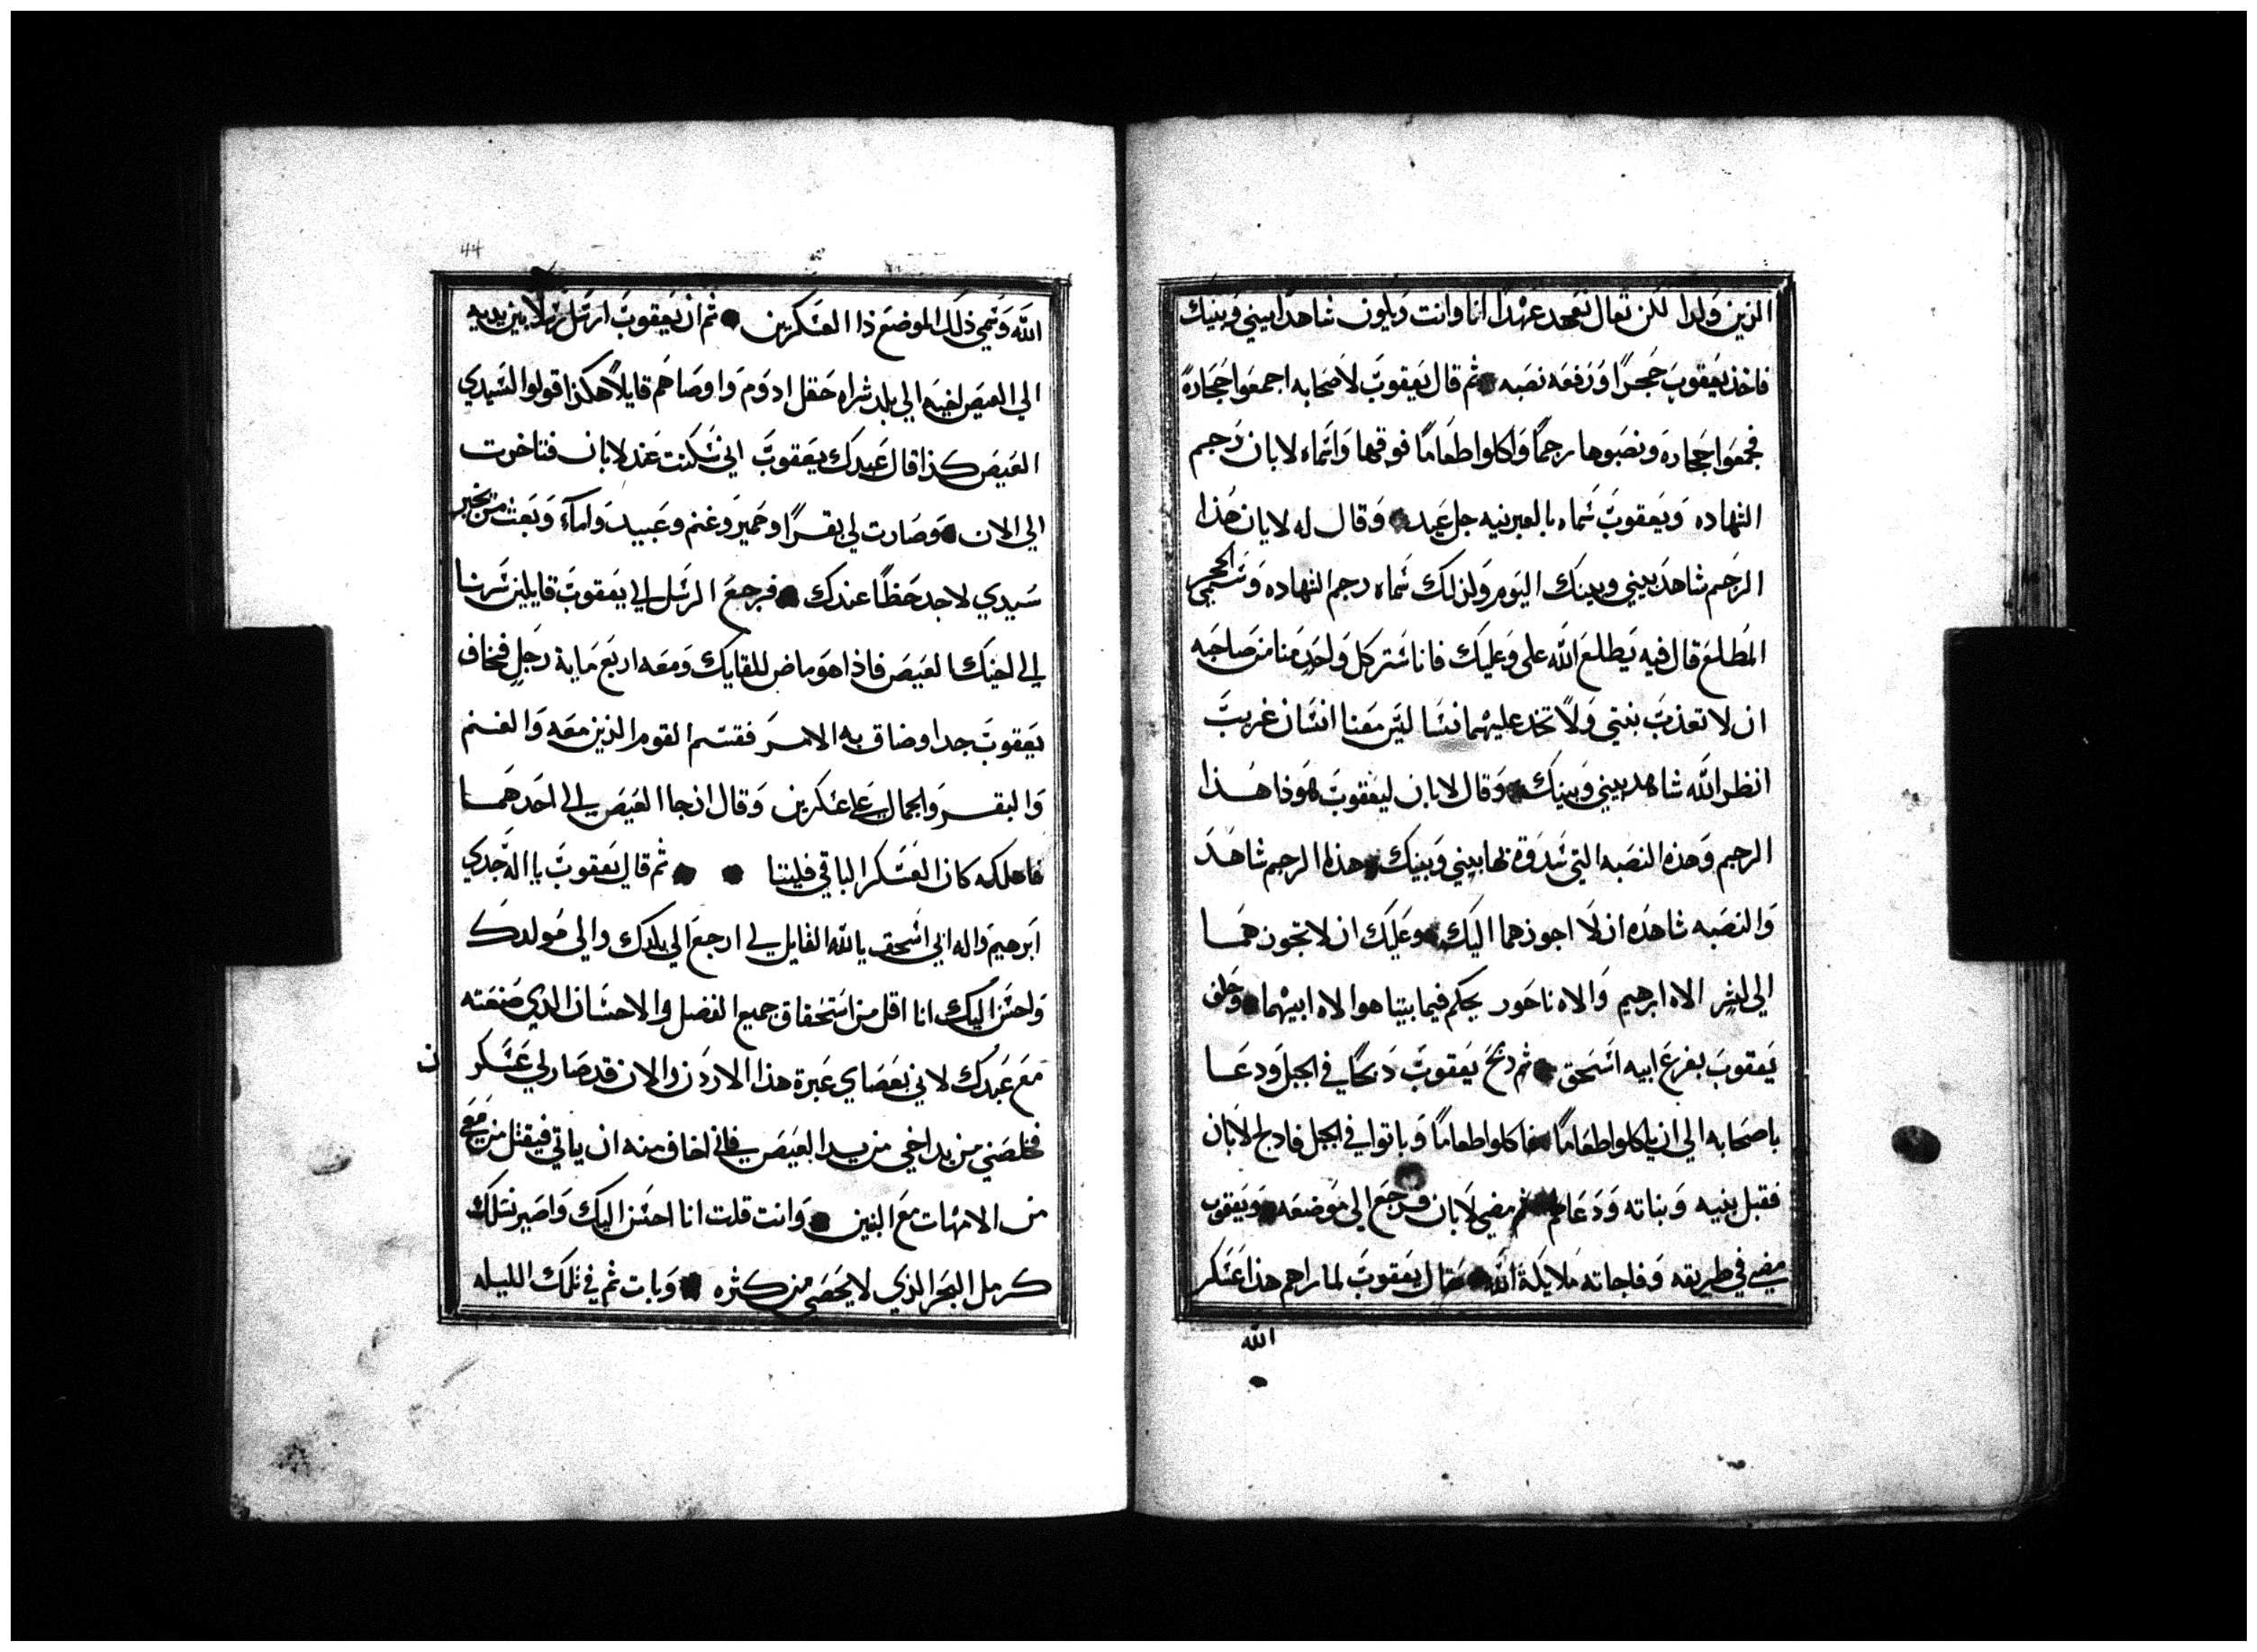 الذين ولدا لكن تعال نعهد عهدا انا وانت ويكون شاهدا بيني وبينك
فاخذ يعقوب حجرا ورفعه نصبه ثم قال يعقوب لاصحابه اجمعوا حجارة
فجمعوا حجاره ونصبوها رجما واكلوا طعاما فوقها واسماه لابان رجم
الشهاده ويعقوب سماه بالعبرنيه جل عيد وقال له لابان هذا
الرجم شاهد بيني وبينك اليوم ولذلك سماه رجم الشهاده وسمي الحجر
المطلع قال فيه يطلع الله علي وعليك فانا ستر كل واحد منا من صاحبه
ان لا تعذب بنتي ولا تتخذ عليهما نسا ليس معنا انسان غريب
انظر الله شاهد بيني وبينك وقال لابان ليعقوب هوذا هذا
الرجم وهذه النصبه التي بيني وبينك هذا الرجم شاهد
والنصبه شاهده ان لا اجوزهما اليك وعليك ان لا تجوزهما
الي لشر الاه ابرهيم والاه ناحور يحكم فيما بيننا هوا الاه ابيهما وحلف
يعقوب بفزع ابيه اسحق ثم ذبح يعقوب ذبحا في الجبل ودعا
باصحابه الي ان ياكلوا طعاما فاكلوا طعاما وباتوا في الجبل فادلج لابان
فقبل بنيه وبناته ودعا لهم ثم مضي لابان فرجع الي موضعه ويعقوب
مضي في طريقه وفاجاته ملايكة الله فقال يعقوب لما راهم هذا عسكر
الله
44
الله وسمي ذلك الموضع ذا العسكرين ثم ان يعقوب ارسل رسلا بين يديه
الي العيص اخيه الي بلد شراه حقل ادوم واوصاهم قايلا هكذا قولوا لسيدي
العيص كذا قال عبدك يعقوب اني سكنت عند لابان فتاخرت
الي الان وصارت لي بقرا وحمير وغنم وعبيد واماء وبعثت من يخبر
سيدي لاجد حظا عندك فرجع الرسل الي يعقوب قايلين سرنا
الي اخيك العيص فاذا هو ماض للقايك ومعه اربع ماية رجل فخاف
يعقوب جدا وضاق به الامر فقسم القوم الذين معه والغنم
والبقر والجمال علي عسكرين وقال ان جا العيص الي احدهما
فاهلكه كان العسكر الباقي فليتنا ثم قال يعقوب يا اله جدي
ابرهيم واله ابي اسحق يا الله القايل لي ارجع الي بلدك والي مولدك
واحسن اليك انا اقل من استحقاق جميع الفضل والاحسان الذي صنعته
مع عبدك لاني بعصاي عبرة هذا الاردن والان قد صار لي عسكر
ن
فخلصني من يد اخي من يد العيص فاني اخاف منه ان ياتي فيقتل من معي
من الامهات مع البنين وانت قلت انا احسن اليك واصير نسلك
كرمل البحر الذي لا يحصي من كثره وبات ثم في تلك الليله